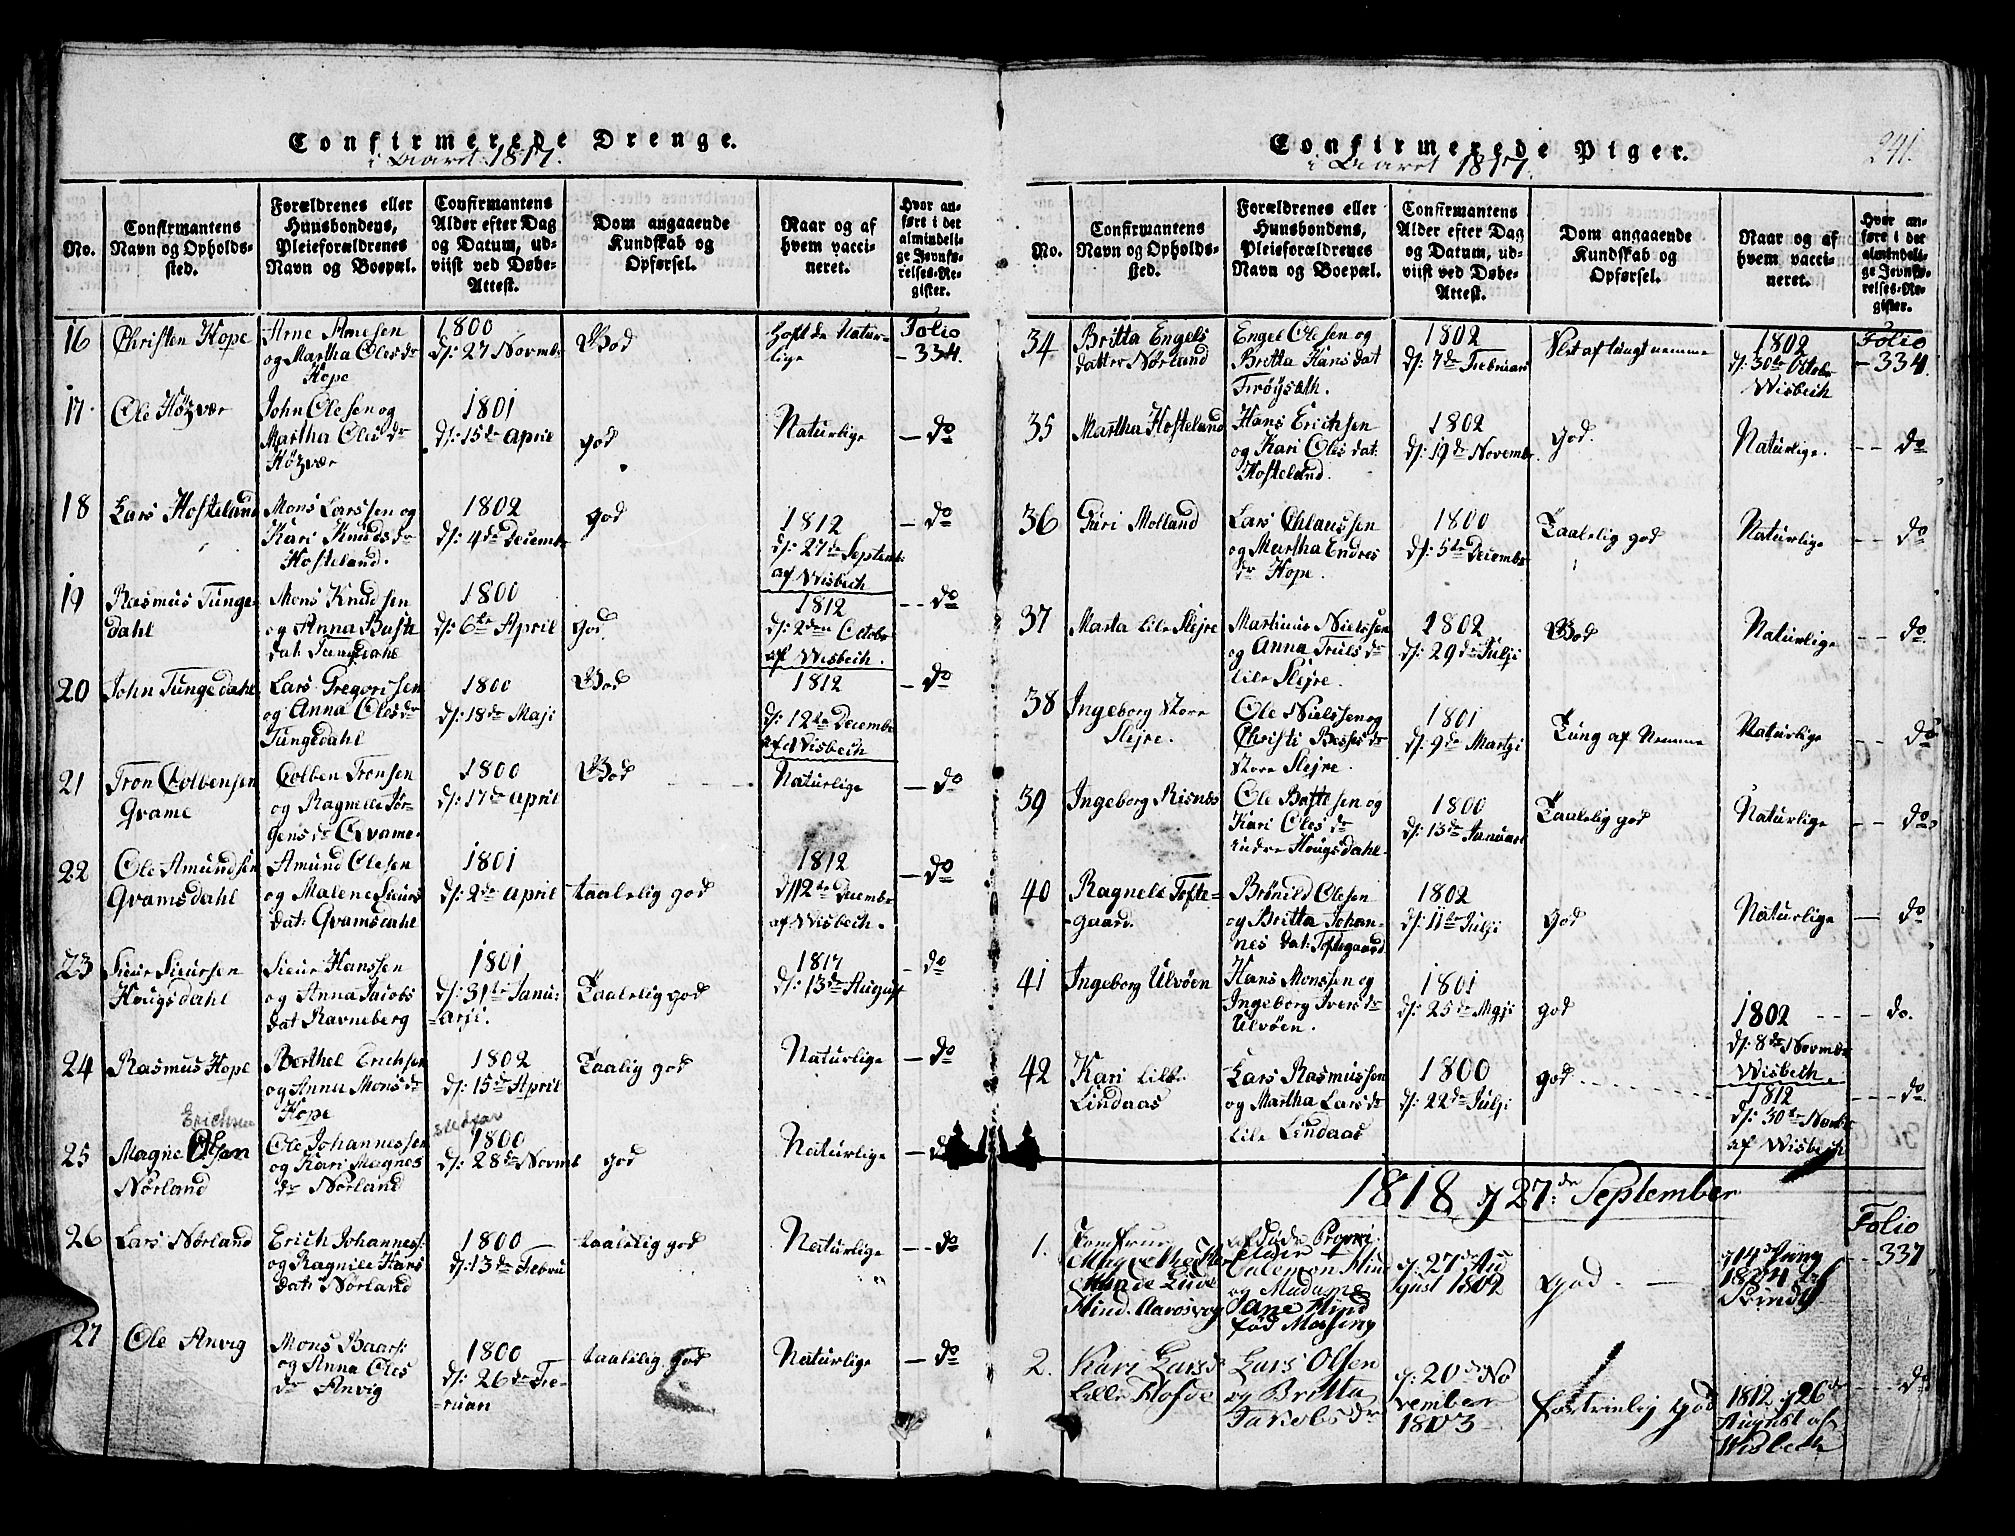 Confirmerede Drenge.
i Aaret 1817.
No.
Confirmantens
Navn og Opholds-
sted.
Forældrenes eller
Huusbondens,
Pleieforældrenes
Navn og Boepæl.
Confirmantens
Alder efter Dag
og Datum, ud-
viist ved Døbe-
Attest.
Dom angaaende
Kundskab og
Opførsel.
Naar og af
hvem vacci-
neret.
Hvor an-
ført i det
almindeli-
ge Jevnfø-
relses-Re-
gister.
16
Christen Hope
Arne Arnesen
og Martha Olesdr
Hope
1800
d: 27 Novmb
God
haft de Natur-
lige
Folio
334.
17
Ole
John Olesen og
Martha Olesdr
1801
d: 15de April
god
Naturlige
do
18
Lars Hosteland
Mons Larssen og
Kari Knudsdr
Hosteland.
1802
d: 4de Decembr
god
1812
d: 27de Septembr
af Wisbech
do
19
Rasmus Tunge-
dahl
Mons Knudsen
og Anna
dat: Tungedahl
1800
d: 6te April
god.
1812
d: 2den Octobr
af Wisbech.
do
20
John Tungedahl
Lars Gregorissen
og Anna Olesdr
Tungedahl
1800
d: 18de Maji
God
1812
d: 12te Decembr
af Wisbech
do
21
Tron Colbensen
Qvame
Colben Tronsen
og Ragnele Jør-
gensdr Qvame
1800
d: 17de April
God
Naturlige
do
22
Ole Amundsen
Qvamsdahl
Amund Olesen
og Malene Siurs
dat: Qvamsdahl
1801
d: 2de April
taalelig god
1812
d 12te Decembr
af Wisbech.
do
23
Siur Siursen
Hougsdahl
Siur Hanssen
og Anna Jacobs
dat Ravneberg
1801
d: 31te Janu-
arji.
Taalelig god
1817
d: 13de August
do
24
Rasmus Hope
Berthel Erichsen
og Anna Monsdr
Hope
1802
d: 15de April
Taalig god
Naturlige
do
25
Erichsen
Magne Olsen
Nørland
Ole Johannessen
og Kari Magnes
dr Nørland
1800
d: 28de Novmb
god
Naturlige
do
26
Lars Nørland
Erich Johannes:
og Ragnile Hans
dat: Nørland
1800
d: 13de Febru
taalelig god
Naturlige
do
27
Ole Anvig
Mons Baars:
og Anna Oles
dr Anvig
1800
d: 26de Fe-
ruari
taalelig god
Naturlige
do
Confirmerede Piger.
i Aaret 1817.
241.
No.
Confirmantens
Navn og Opholds-
sted.
Forældrenes eller
Huusbondens,
Pleieforældrenes
Navn og Boepæl.
Confirmantens
Alder efter Dag
og Datum, ud-
viist ved Døbe-
Attest.
Dom angaaende
Kundskab og
Opførsel.
Naar og af
hvem vacci-
neret.
Hvor an-
ført i det
almindeli-
ge Jevnfø-
relses-Re-
gister.
34
Britta Engels
datter Nørland
Engel Olesen og
Britta Hansdat
Frøysæth.
1802
d: 7de Februari
af tungt nemme
1802
d: 30te Octobr
Wisbech
Folio
334.
35
Martha Hosteland
Hans Erichsen
og Kari Olesdat:
Hosteland.
1802
d: 19de Novembr.
god.
Naturlige.
do
36
Guri Molland
Lars Chlaussen
og Martha Endres
dr Hope.
1800
d: 5te Decembr
Taalelig god
Naturlige
do
37
Marta lile Slejre
Martinus Nielssen
og Anna Truls dr
lile Slejre.
1802
d: 29de Julji
God
Naturlige
do
38
Ingeborg Store
Slejre.
Ole Nielssen og
Christi Besses dr
Store Slejre.
1801
d: 9de Martji
Tung af Nemme
Naturlige
do
39
Ingeborg Risnes
Ole Battesen og
Kari Oles dr
indre Hougsdahl
1800
d: 13de Januari
Taalelig god
Naturlige
do
40
Ragnele Tofte-
gaard.
Brønild Olesen
og Britta Johan-
nes dat: Toftegaard
1802
d: 11te Julji
god
Naturlige
do
41
Ingeborg Ulvøen
Hans Monssen og
Ingeborg Iversdr
Ulvøen.
1801
d: 25de Maji
god
1802
d: 8de Novmbr
Wisbech.
do.
42
Kari lille
Lindaas
Lars Rasmussen
og Martha Larsdr
lile Lindaas
1800
d: 22de Julji
god
1812
d: 30te Novbr
af Wisbech
do
1818 d 27de September
1.
Jomfrue
Hind. Aarosvog
afdøde Propri
etair
Salomon Hind
og Madame
Jane Hind
fød Massing
d: 27de Au
gust 1802
God
Folio
337
2.
Kari Larsd
Lille Hofde
Lars Olsen
og Britta
Jakobsdr
d: 20de No
vember
1803
fortrinlig God
1812 d 26de
August af
Wisbech
do